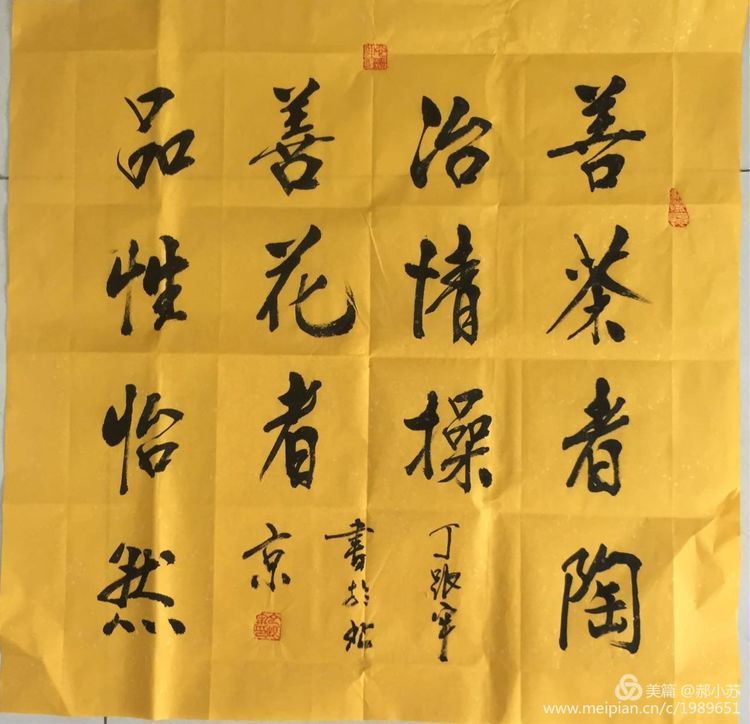 善茶者陶
冶情操
善花者
品性怡然
丁
書於北
京
美篇 @郝小苏
www.meipian.cn/c/1989651